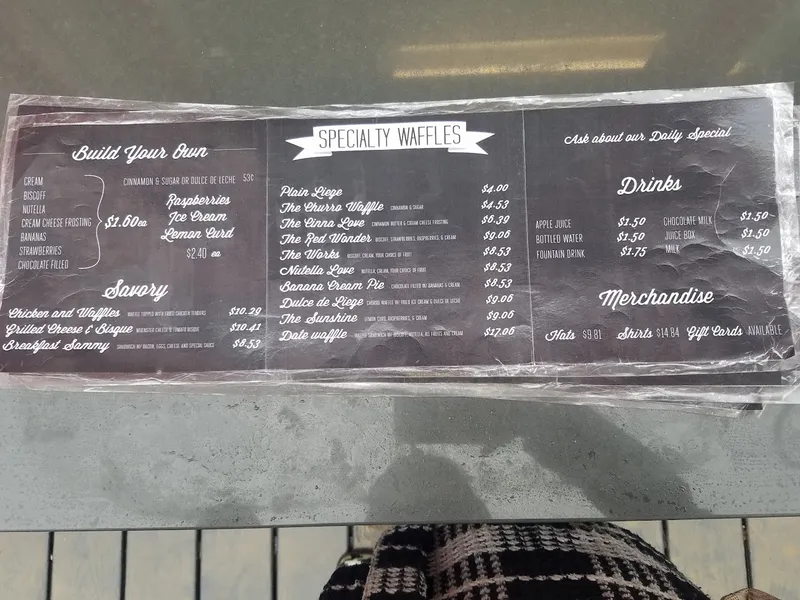 Build Your Own
CREAM
BISCOFF
NUTELLA
CREAM CHEESE FROSTING
BANANAS
STRAWBERRIES
CHOCOLATE FILLED
$1.60 ea
CINNAMON & SUGAR OR DULCE DE LECHE 53¢
Raspberries
Ice Cream
Lemon Curd
$2.40 ea
Savory
Chicken and Waffles WAFFLE TOPPED WITH CHICKEN TENDERS $10.29
Grilled Cheese & Bisque CHEESE & TOMATO BISQUE $10.41
Breakfast Sammy SANDWICH W/ BACON, EGGS, CHEESE AND SPECIAL SAUCE $8.53
SPECIALTY WAFFLES
Plain Liege $4.00
The Churro Waffle CINNAMON & SUGAR $4.53
The Cinna Love CINNAMON BUTTER & CREAM CHEESE FROSTING $6.39
The Red Wonder BISCOFF, STRAWBERRIES, RASPBERRIES, & CREAM $9.06
The Works BISCOFF, CREAM, YOUR CHOICE OF FRUIT $8.53
Nutella Love NUTELLA, CREAM, YOUR CHOICE OF FRUIT $8.53
Banana Cream Pie CHOCOLATE FILLED W/ BANANAS & CREAM $8.53
Dulce de Liege WAFFLE W/ FRIED ICE CREAM & DULCE DE LECHE $9.06
The Sunshine LEMON CURD, RASPBERRIES, & CREAM $9.06
Date waffle SANDWICH W/ BISCOFF, NUTELLA, ALL FRUITS AND CREAM $17.06
Ask about our Daily Special
Drinks
APPLE JUICE $1.50
BOTTLED WATER $1.50
FOUNTAIN DRINK $1.75
CHOCOLATE MILK $1.50
JUICE BOX $1.50
MILK $1.50
Merchandise
Hats $9.81 Shirts $14.84 Gift Cards AVAILABLE